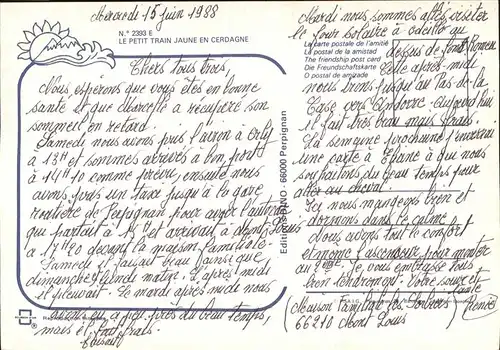 Mercredi 15 juin 1988
N.° 2393 E
LE PETIT TRAIN JAUNE EN CERDAGNE
Chers tous trois,
Nous espérons que vous êtes en bonne
santé et que Marcelle a récupéré son
sommeil en retard.
Samedi nous avons pris l'avion à Orly
à 13H et sommes arrivés à bon port
à 14H10 comme prévu, ensuite nous
avons pris un taxi jusqu'à la gare
routière de Perpignan pour avoir l'autocar
qui partait à et arrivait à
à 17H20 devant la maison familiale.
Samedi il faisait beau ainsi que
dimanche, lundi matin. L'après midi
il pleuvait. Le mardi après midi nous
avons eu à peu près du beau temps,
mais il frais.
faisait
Editions DINO - 66000 Perpignan
La carte postale de l'amitié
La postal de la amistad
The friendship post card
Die Freundschaftskarte
O postal de amizade
Mardi nous sommes allés visiter
le four solaire à Odeillo au
dessus de Font Romeu.
Cette après-midi
nous irons jusqu'au Pas-de-la
Case vers Andorre. Aujourd'hui
il fait très beau mais frais.
La semaine prochaine j'enverrai
une carte à que nous
souhaitons du beau temps pour
aller au
Ici nous mangeons bien et
dormons dans le calme.
Nous avons tout le confort
et même l'ascenseur pour monter
au 2ème. Je vous embrasse tous
bien tendrement. Votre soeur et
tante
Renée
(Maison Familiale les
66210 Mont Louis